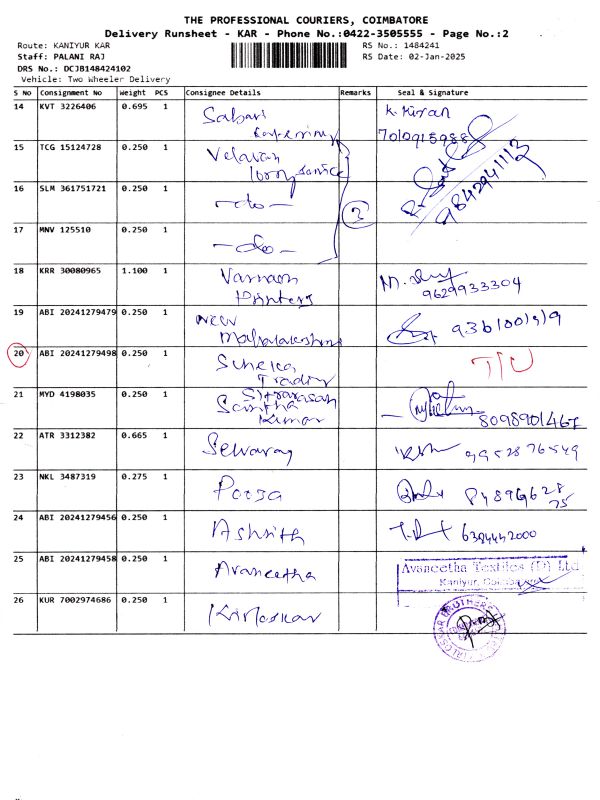 THE PROFESSIONAL COURIERS, COIMBATORE
Delivery Runsheet - KAR - Phone No.:0422-3505555 - Page No.:2
Route: KANIYUR KAR
RS No.: 1484241
Staff: PALANI RAJ
RS Date: 02-Jan-2025
DRS No.: DCJB148424102
Vehicle: Two Wheeler Delivery
S No Consignment No Weight PCS Consignee Details Remarks Seal & Signature
14 KVT 3226406 0.695 1 Sabari K. Kiran
7010915988
15 TCG 15124728 0.250 1 Velavan
lorry service
9842941113
16 SLM 361751721 0.250 1 -do-
3
17 MNV 125510 0.250 1 -do-
18 KRR 30080965 1.100 1 Varnaon
Printers
9629933304
19 ABI 20241279479 0.250 1 New
Mahalakshmi
20 ABI 20241279498 0.250 1
Trading
21 MYD 4198035 0.250 1
Kumar
8098901467
22 ATR 3312382 0.665 1 Selvaraj 9952876549
23 NKL 3487319 0.275 1 Pooja
24 ABI 20241279456 0.250 1 Ashrith 6384442000
25 ABI 20241279458 0.250 1 Avaneetha
Avaneetha Textiles (P) Ltd
Kaniyur, Coimbatore
26 KUR 7002974686 0.250 1 Kirloskar